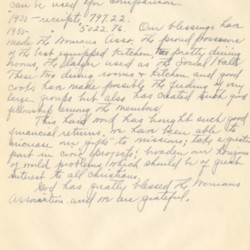 can be used for comparison.
1920 - receipts, 797.22.
1950 - " 5022.76. Our blessings have
made the Womans Assoc. the proud possessors
of the best equipped kitchen, two pretty dining
rooms, the larger used as the Social Hall.
These two dining rooms & kitchen and good
cooks have made possible the feeding of very
large groups but also has created such good
fellowship among the members.
This hard work has brought such good
financial returns, we have been able to
increase our gifts to missions; take a greater
part in civic projects; broaden our horizon
of world problems which should be of great
interest to all christians.
God has greatly blessed the Womans
Association and we are grateful.